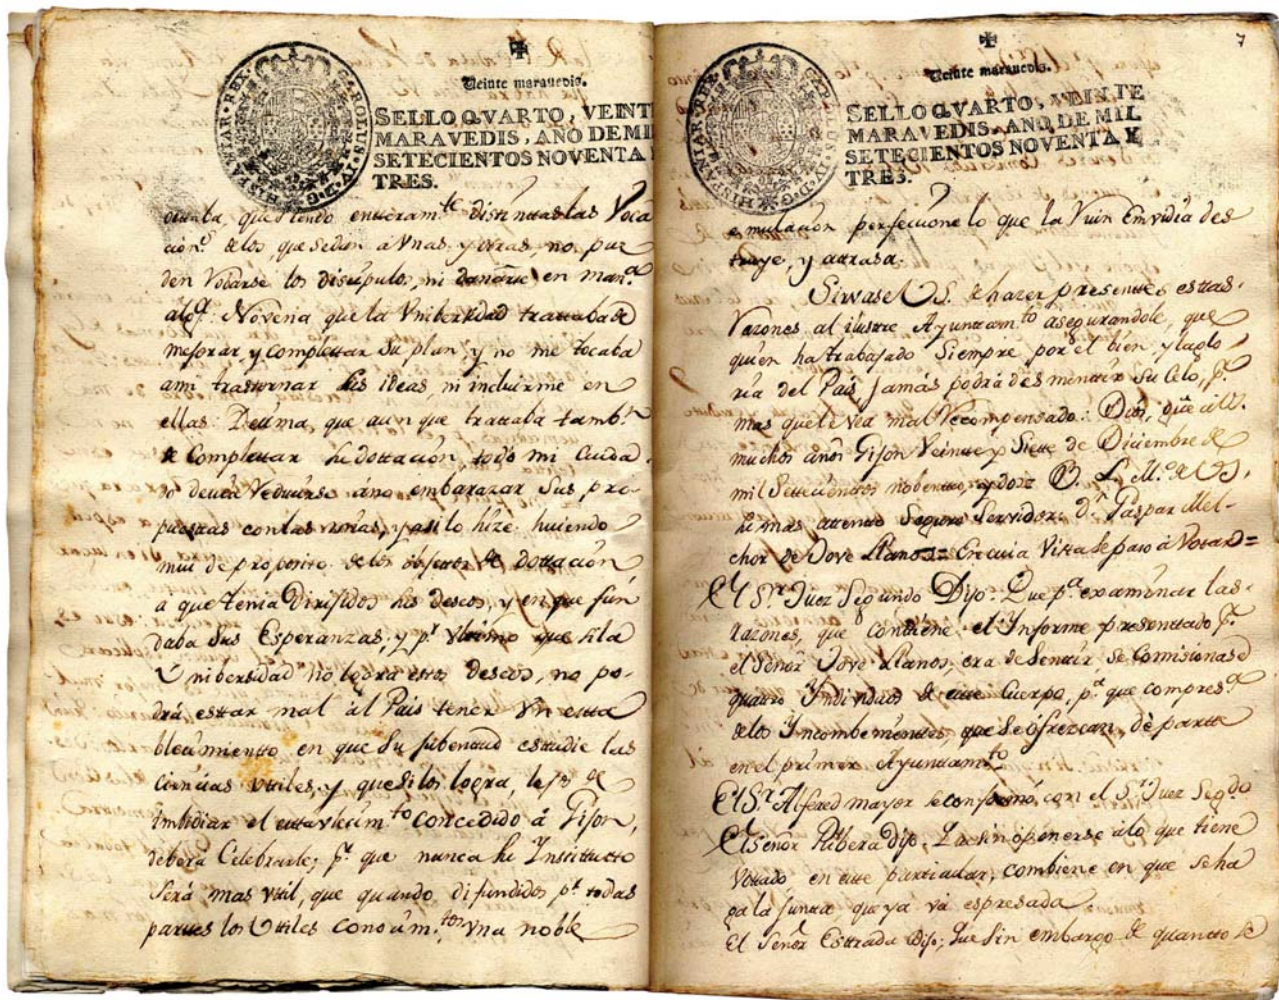 Veinte marauedis.
SELLO QVARTO, VEINT
MARAVEDIS, AÑO DE MI
SETECIENTOS NOVENTA
TRES.
CAROLUS IV D G HISPANIAR REX
que siendo enteram.te distinttas las Voca
cion.s delos, que sedan á Vnas, y otras, no pue
den Vobarse los discipulos, ni en man.a
alg.a: Novena que la Vnibersidad trattaba de
mejorar, y complettar su plan, y no me tocaba
ami trastornar sus ideas, ni incluirme en
ellas: Dezima, que aun que trattaba tamb.n
de Complettar su dottacion, todo mi Cuida
do deviá Veducirse áno embarazar sus pro
puestas conlas mias, y asi lo hize huiendo
mui de proposito delos objettos de dottacion
a que tenia Dirijidos sus deseos, y en que fun
daba sus Esperanzas; y p.r Vltimo que si la
Vnibersidad no logra estos deseos, no po-
drá esttar mal al Pais tener Vn estta
blecimientto en que su jubentud estudie las
ciencias Vtiles, y que si los logra, lejos de
Embidiar el establecim.to concedido á Gijon,
deberá Celebrarle; p.r que nunca su Instittutto
será mas Vtil, que quando difundidos p.r todas
parttes los Vttiles conocim.tos Vna noble
7
Veinte marauedis.
SELLO QVARTO, VEINTE
MARAVEDIS, AÑO DE MIL
SETECIENTOS NOVENTA Y
TRES.
CAROLUS IV D G HISPANIAR REX
emulacion perfeccione lo que la Vuin Emvidia des
truye, y attrasa.
Sirvase V.S. de hazer presenttes esttas
Vazones al ilustre Ayuntam.to asegurandole, que
quien ha trabajado Siempre por el bien y la glo
ria del Pais, jamás podrá desmenttir su Celo, p.r
mas que le vea mal Vecompensado: Dios, gũe á V.S.
muchos años Gijon Veintte y Siette de Diciembre de
mil Settecienttos nobentta, y doze B. L. M.o de V.S.
su mas attentto Seguro Servidor: D.n Gaspar Mel-
chor de Jove Llanos= En cuia Vistta se paso á Votar=
El S.r Juez Segundo Dijo: Que p.a examinar las
Razones, que contiene el Ynforme presenttado p.r
el Señor Jove Llanos, era de Senttir se Comisionase
quatro Yndividuos de estte Cuerpo, p.a que compres.n
delos Yncombenienttes, que se ofrezcan, dé partte
en el primer Ayuntam.to
El S.r Alferez mayor se conformó, con el S.r Juez Seg.do
El Señor Ribera Dijo: Que sin oponerse alo que tiene
Vottado en estte particular, combiene en que se ha
ga la juntta que ya vá espresada
El Señor Esttrada Dijo; Que sin embargo de quantto se